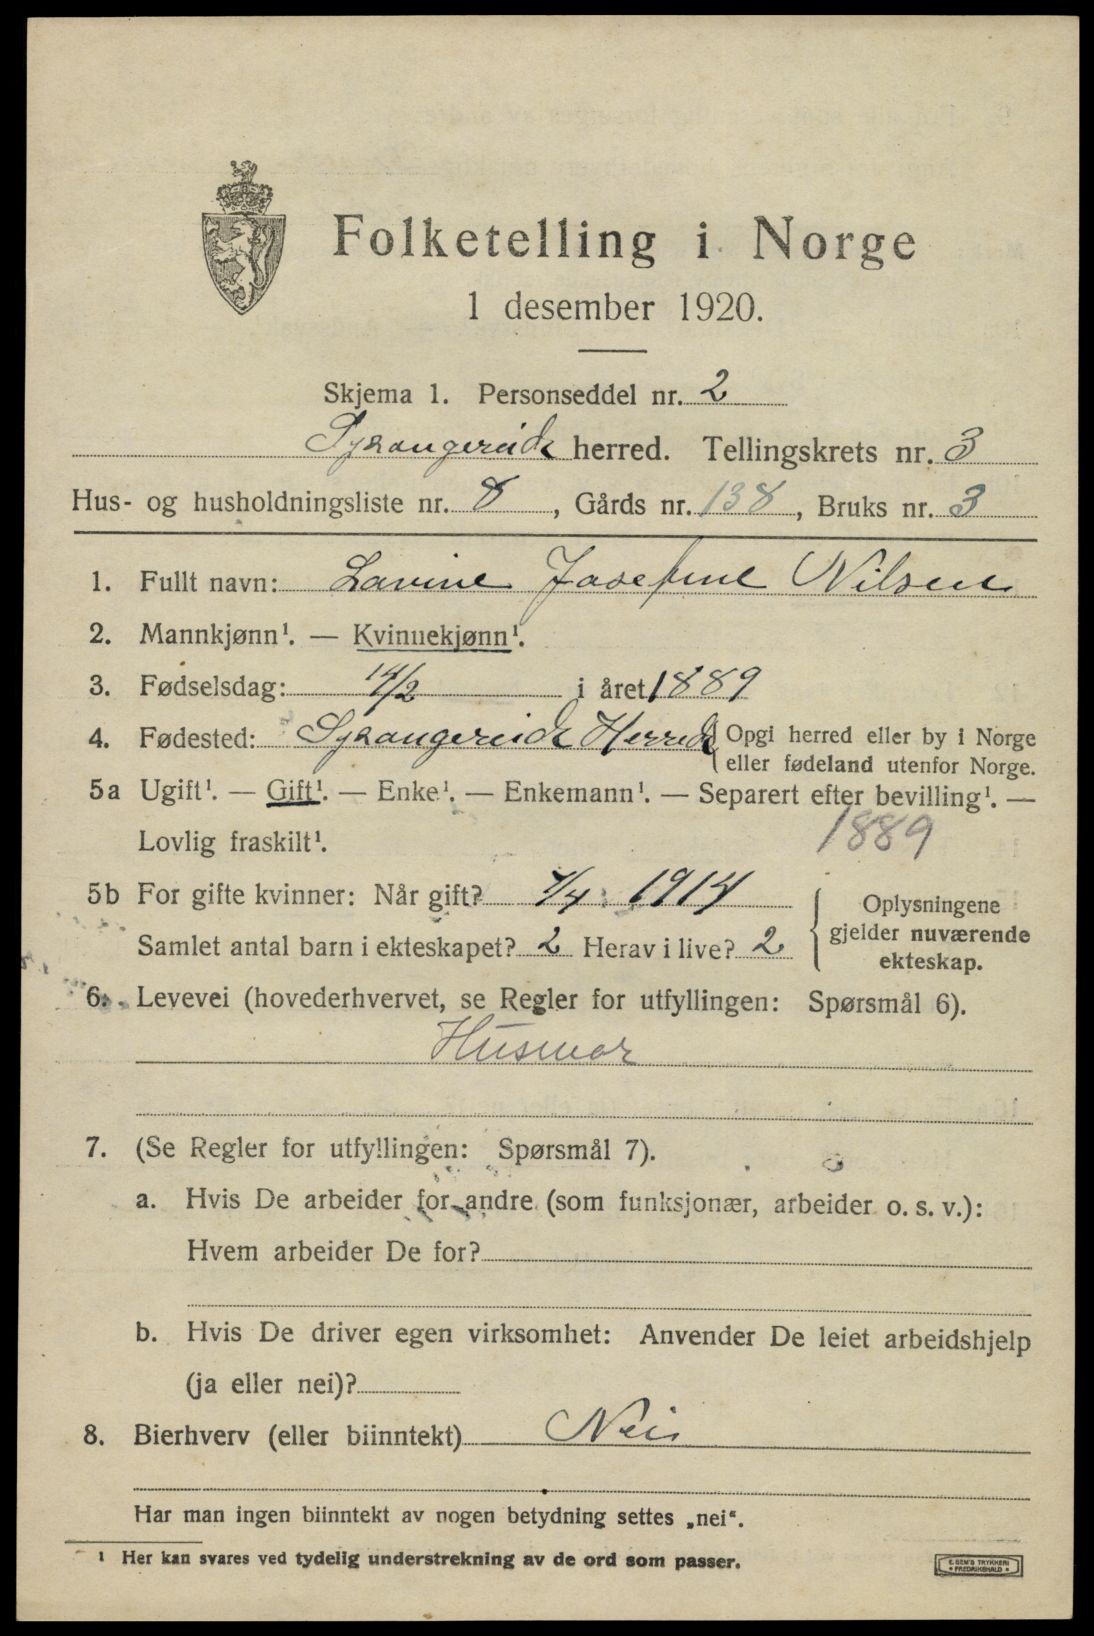 Folketelling i Norge
1 desember 1920.
Skjema 1. Personseddel nr. 2
Spangereid herred. Tellingskrets nr. 3
Hus- og husholdningsliste nr. 8, Gårds nr. 138, Bruks nr. 3
1. Fullt navn: Lavine Josefine Nilsen
2. Mannkjønn¹. — Kvinnekjønn¹.
3. Fødselsdag: 14/2 i året 1889
4. Fødested: Spangereid Herred { Opgi herred eller by i Norge
eller fødeland utenfor Norge.
5a Ugift¹. — Gift¹. — Enke¹. — Enkemann¹. — Separert efter bevilling¹. —
Lovlig fraskilt¹. 1889
5b For gifte kvinner: Når gift? 7/4 1914
Samlet antal barn i ekteskapet? 2 Herav i live? 2
Oplysningene
gjelder nuværende
ekteskap.
6. Levevei (hovederhvervet, se Regler for utfyllingen: Spørsmål 6).
Husmor
7. (Se Regler for utfyllingen: Spørsmål 7).
a. Hvis De arbeider for andre (som funksjonær, arbeider o. s. v.):
Hvem arbeider De for?
b. Hvis De driver egen virksomhet: Anvender De leiet arbeidshjelp
(ja eller nei)?
8. Bierhverv (eller biinntekt) Nei
Har man ingen biinntekt av nogen betydning settes „nei“.
¹ Her kan svares ved tydelig understrekning av de ord som passer.
E. SEM'S TRYKKERI
• FREDRIKSHALD •